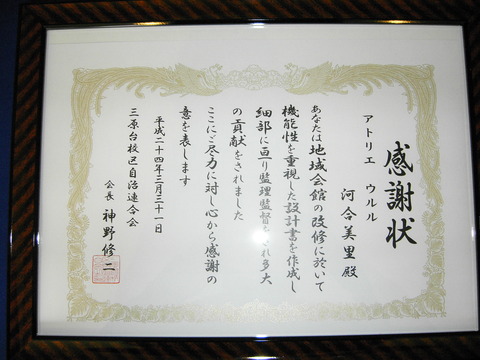 感謝状
アトリエ ウルル
河合美里殿
あなたは地域会館の改修に於いて
機能性を重視した設計書を作成し
細部に亘り監理監督をされ多大
の貢献をされました
ここにご尽力に対し心から感謝の
意を表します
平成二十四年三月三十一日
三原台校区自治連合会
会長 神野修二